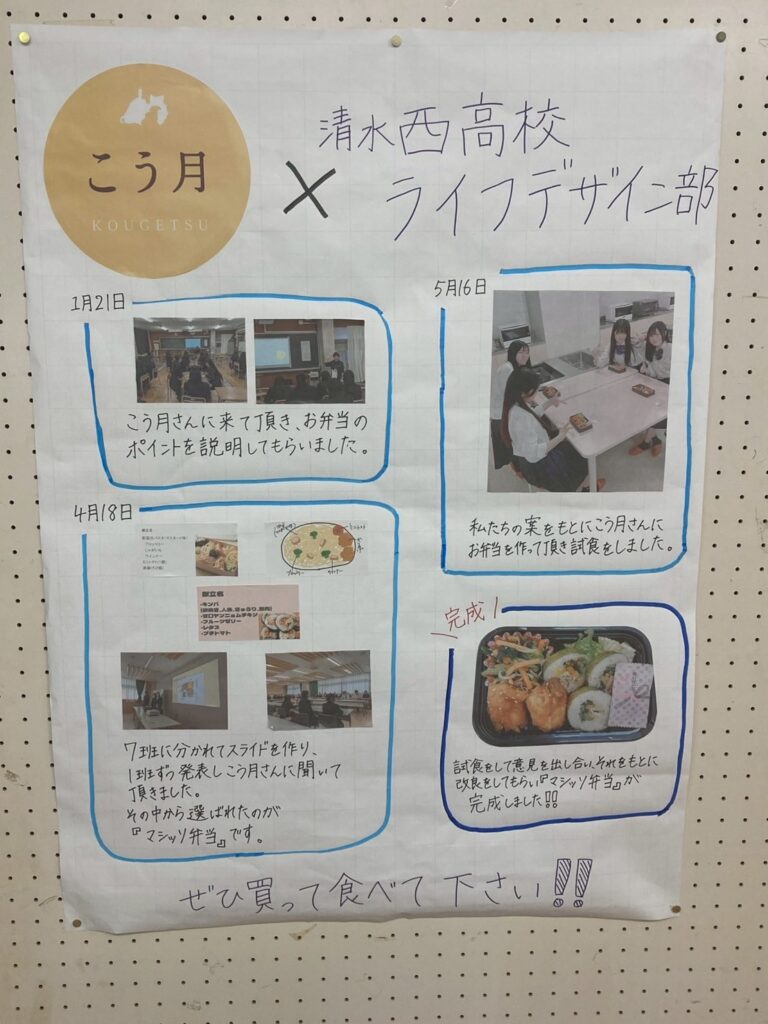 こう月
KOUGETSU
×
清水西高校
ライフデザイン部
1月21日
こう月さんに来て頂き、お弁当の
ポイントを説明してもらいました。
4月18日
献立名
・キンパ
・甘口ヤンニョムチキン
・フルーツゼリー
・レタス
・プチトマト
7班に分かれてスライドを作り、
1班ずつ発表しこう月さんに聞いて
頂きました。
その中から選ばれたのが
『マシッソ弁当』です。
5月16日
私たちの案をもとにこう月さんに
お弁当を作って頂き試食をしました。
完成!
試食をして意見を出し合い、それをもとに
改良をしてもらい『マシッソ弁当』が
完成しました!!
ぜひ買って食べて下さい!!